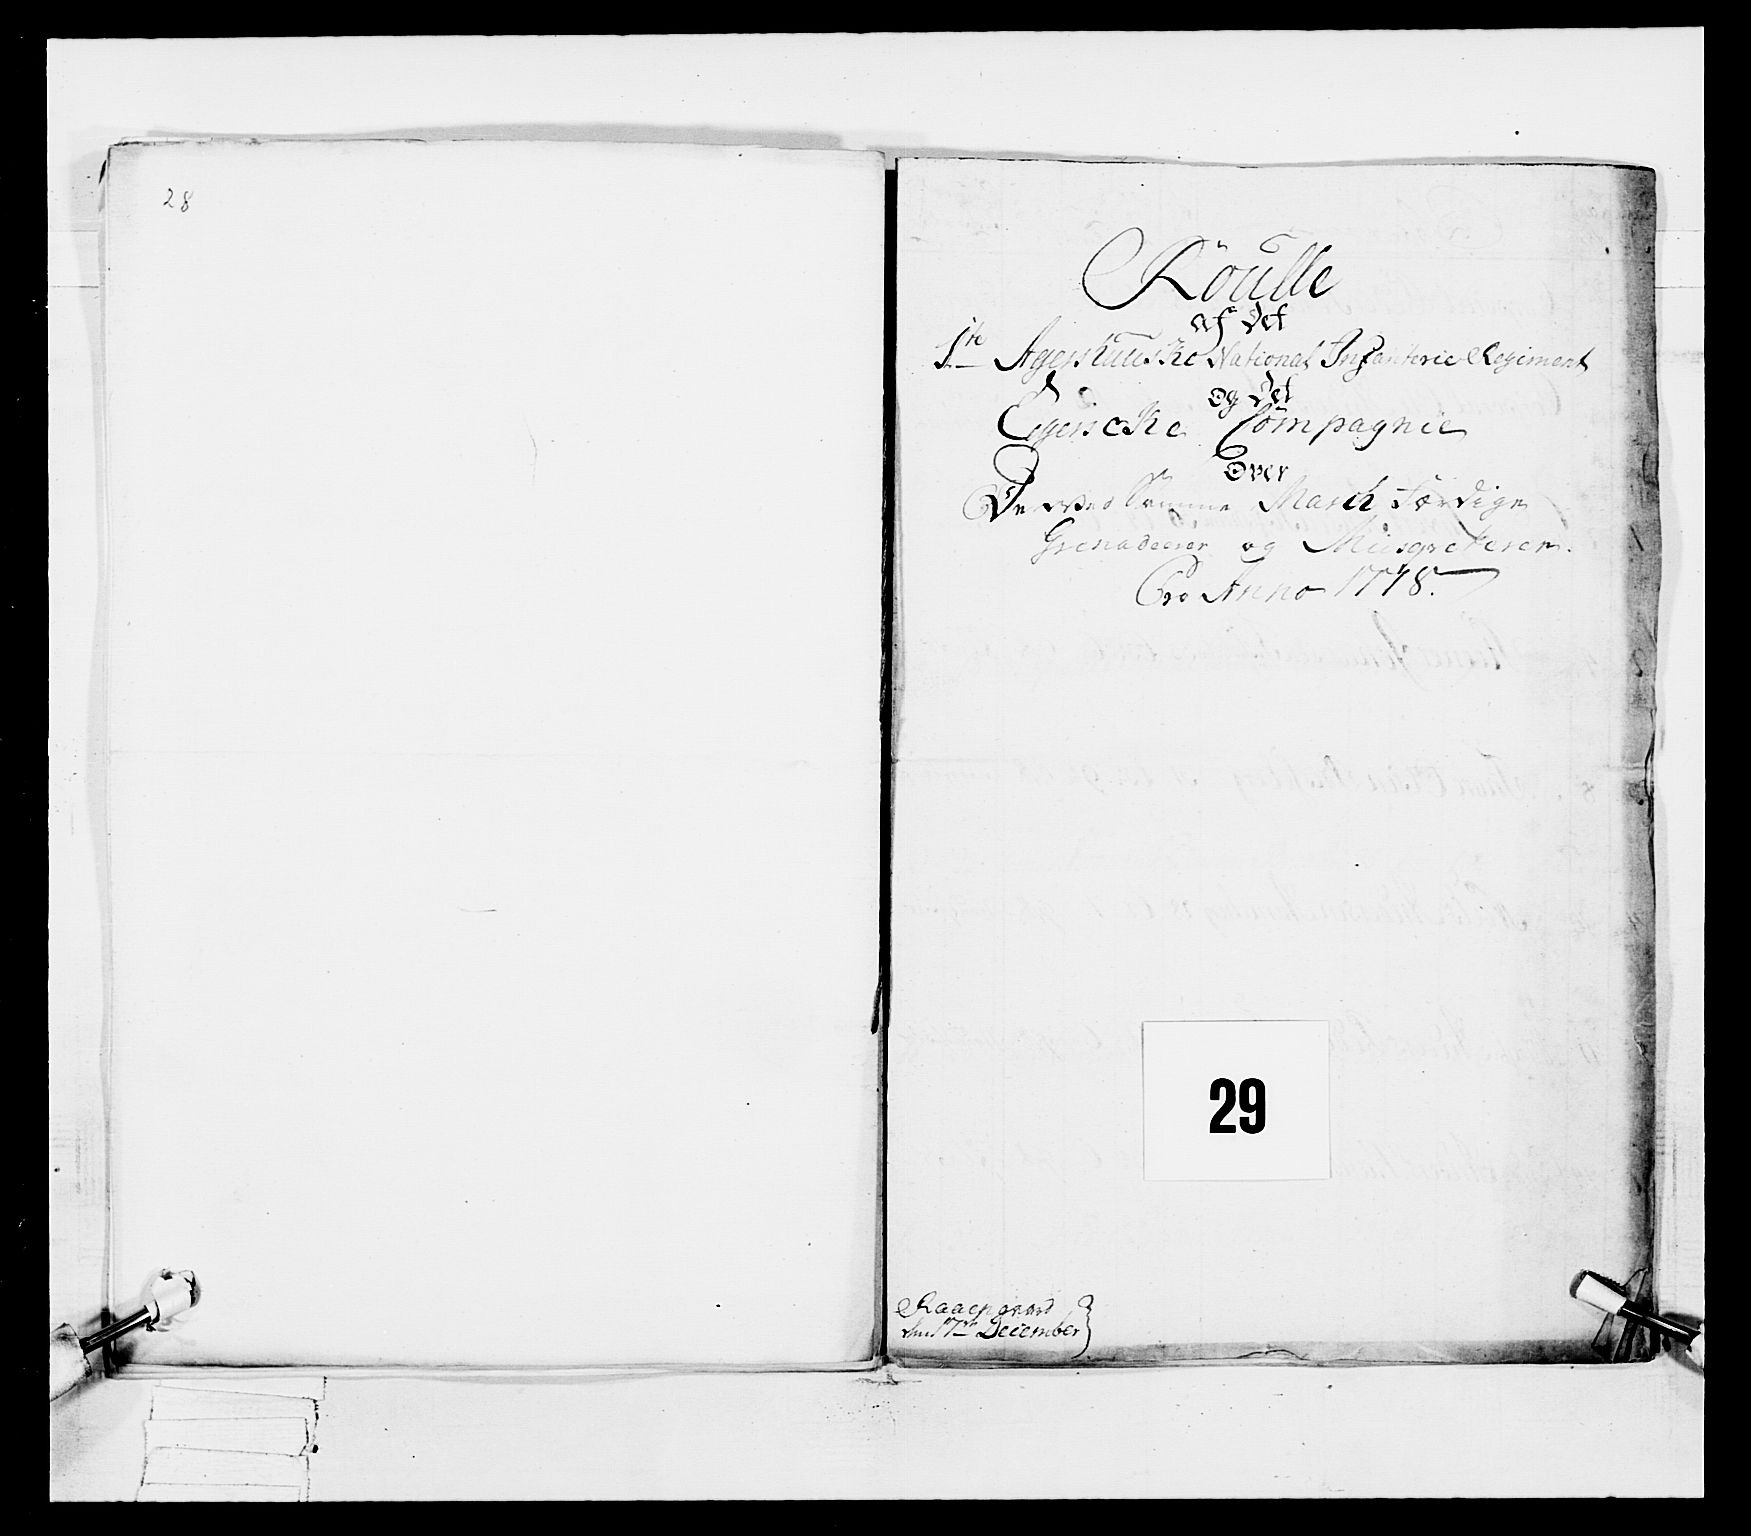 28
Roulle
af det
1te Agershuuske National Infanterie Regiment
og det
Egerscke Compagnie
Over
De ved Samme March Færdige
Grenadeerer og Musqveterer.
Pro Anno 1778.
29
Raaen gaard
den 17de December